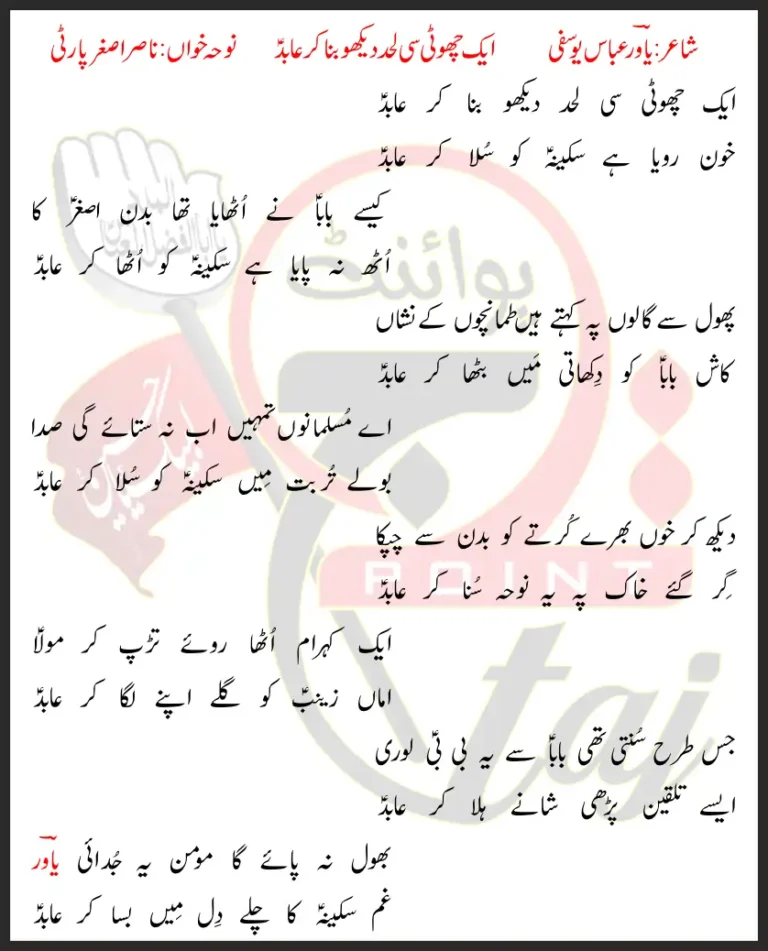 شاعر: یاور عباس یوسفی ایک چھوٹی سی لحد دیکھو بنا کر عابدؑ نوحہ خواں: ناصر اصغر پارٹی
ایک چھوٹی سی لحد دیکھو بنا کر عابدؑ
خون رویا ہے سکینہؑ کو سُلا کر عابدؑ
کیسے باباؑ نے اُٹھایا تھا بدن اصغرؑ کا
اُٹھ نہ پایا ہے سکینہؑ کو اُٹھا کر عابدؑ
پھول سے گالوں پہ کہتے ہیں طمانچوں کے نشاں
کاش باباؑ کو دِکھاتی مَیں بٹھا کر عابدؑ
اے مُسلمانوں تمہیں اب نہ ستائے گی صدا
بولے تُربت مِیں سکینہؑ کو سُلا کر عابدؑ
دیکھ کر خوں بھرے کُرتے کو بدن سے چپکا
گِر گئے خاک پہ یہ نوحہ سُنا کر عابدؑ
ایک کہرام اُٹھا روئے تڑپ کر مولاؑ
اماں زینبؑ کو گلے اپنے لگا کر عابدؑ
جس طرح سُنتی تھی باباؑ سے یہ بی بیؑ لوری
ایسے تلقین پڑھی شانے ہلا کر عابدؑ
بھول نہ پائے گا مومن یہ جُدائی یاور
غم سکینہؑ کا چلے دِل مِیں بسا کر عابدؑ
پوائنٹ
POINT
taj